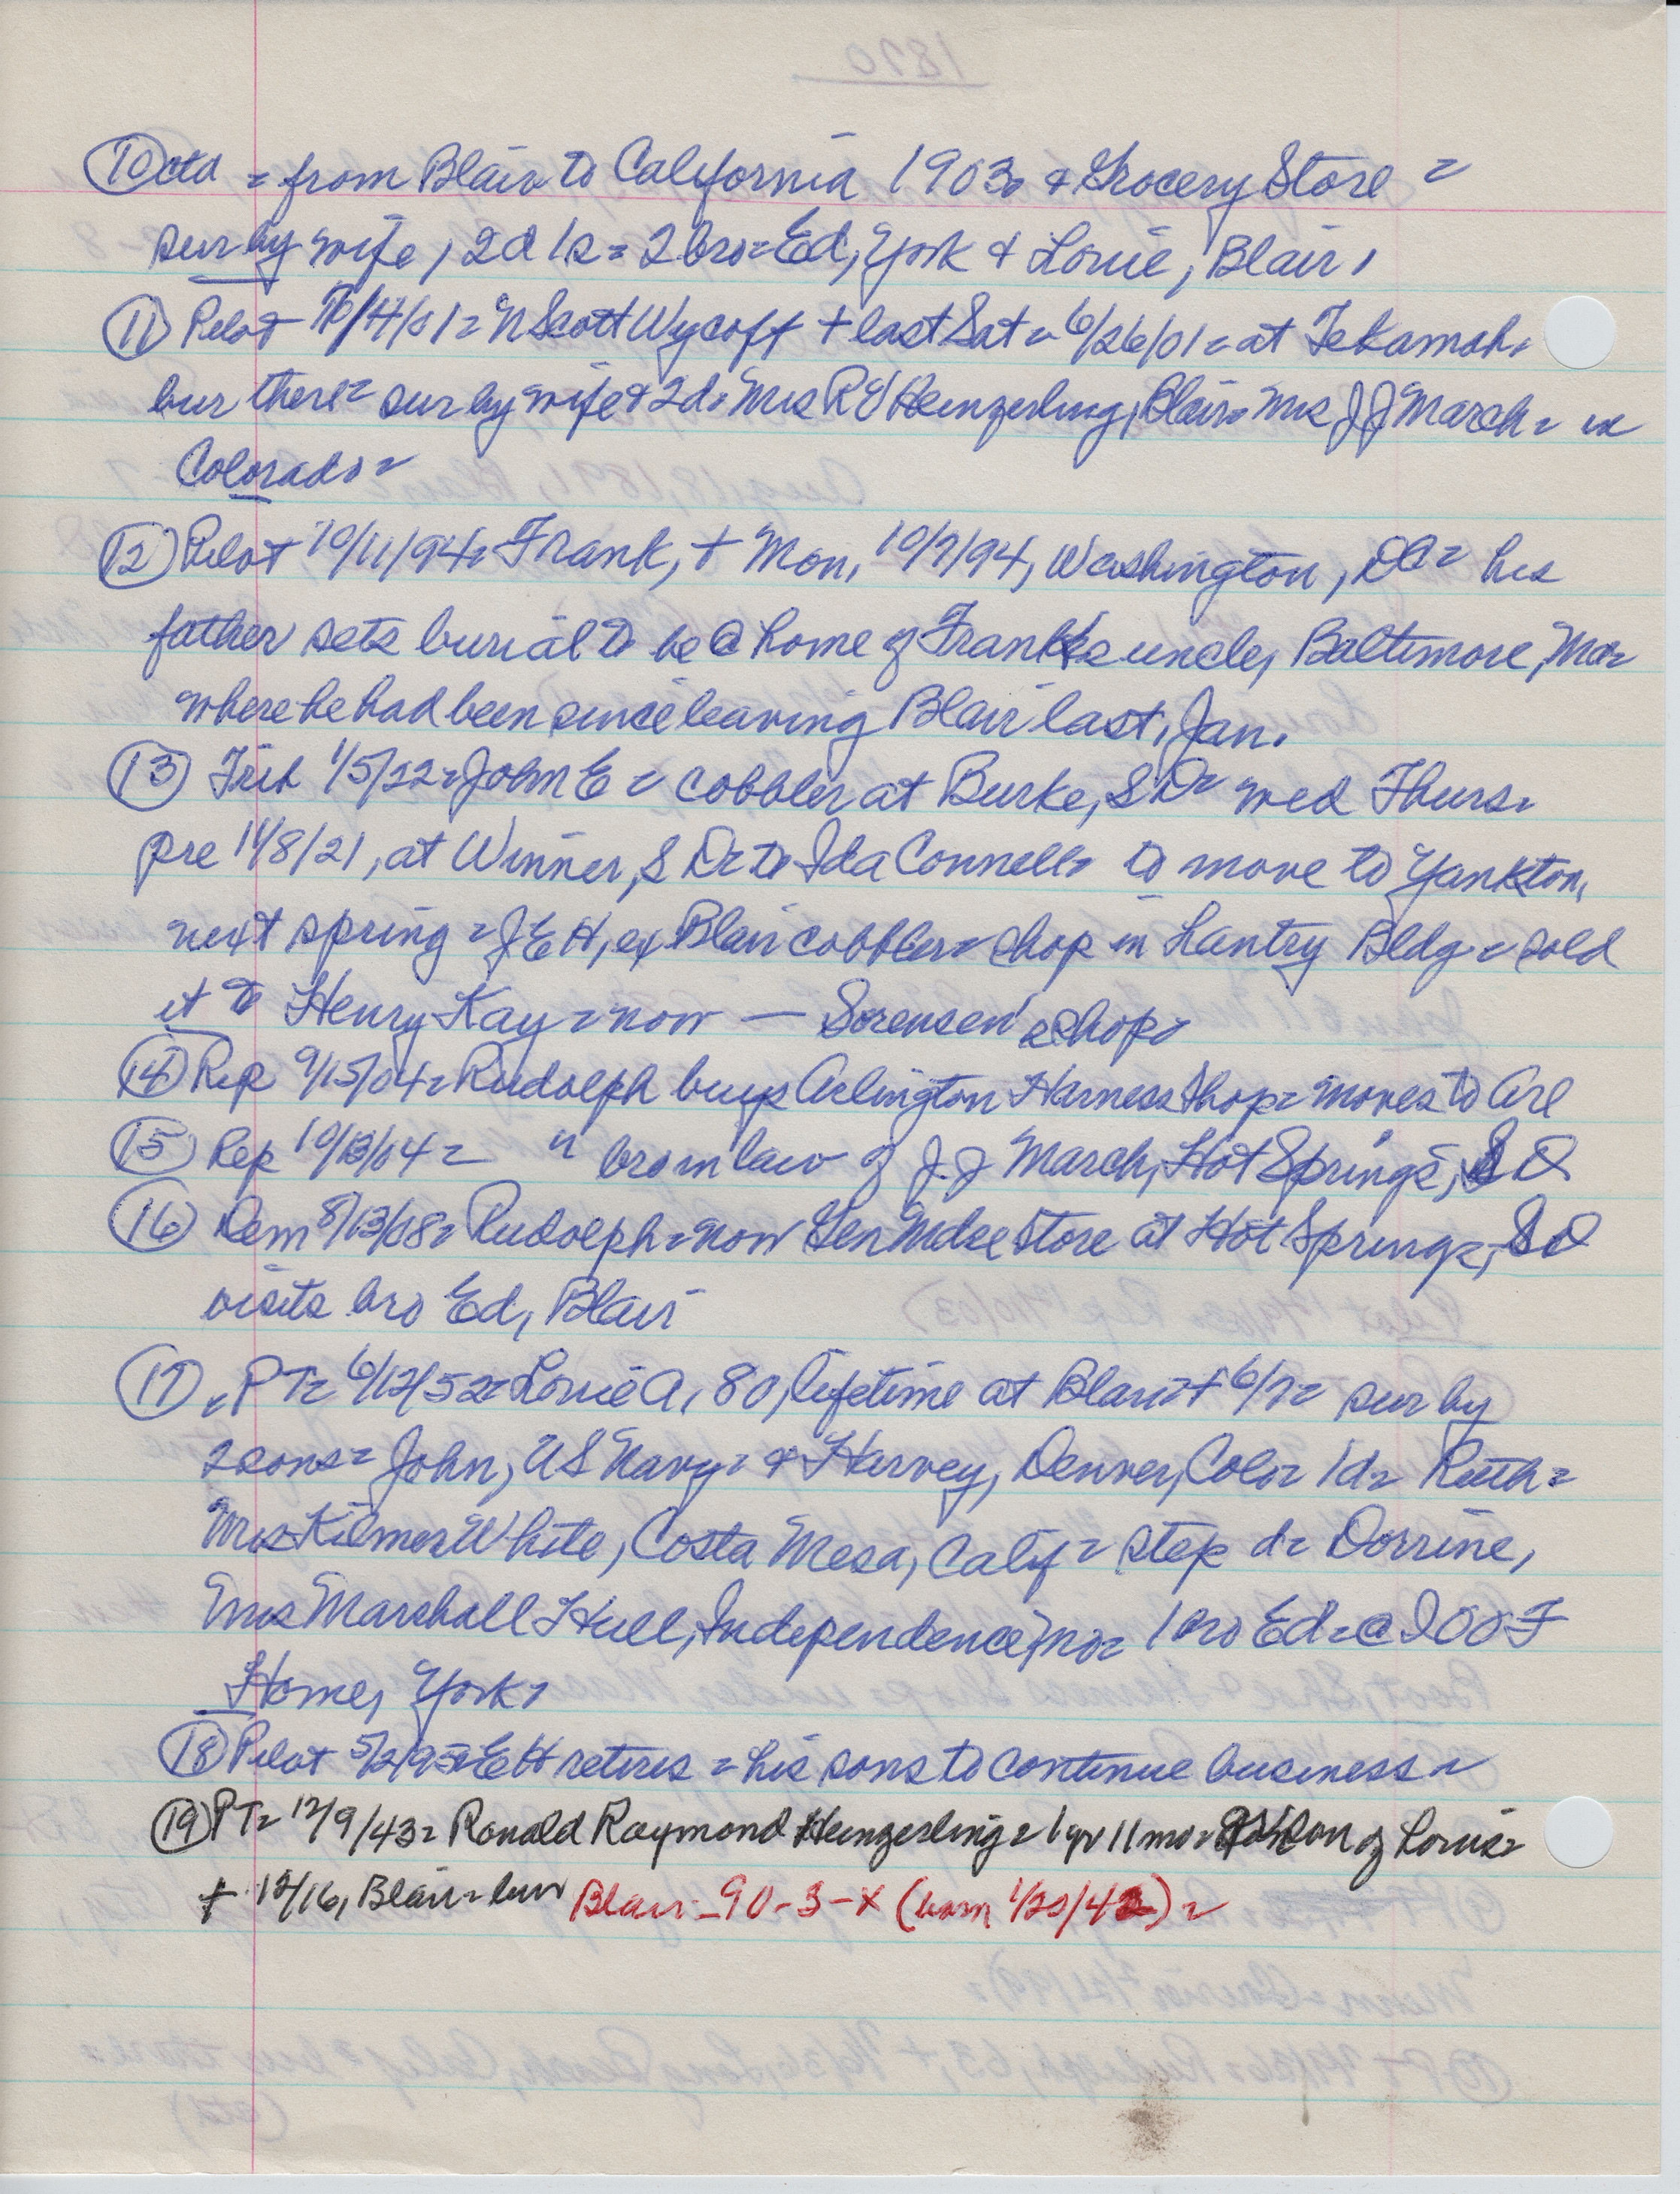 ⑩ ctd = from Blair to California 1903 = & Grocery Store =
sur by wife, 2d 1s = 2 bro = Ed, York & Louie, Blair,
⑪ Pilot 10/4/01 = N Scott Wycoff + last Sat = 6/26/01 = at Tekamah,
bur there = sur by wife & 2d = Mrs R E Heinzerling, Blair = Mrs J J March = in
Colorado =
⑫ Pilot 10/11/94 = Frank, + Mon, 10/7/94, Washington, DC = his
father sets burial to be @ home of Frank's uncle, Baltimore, Md =
where he had been since leaving Blair last, Jan.
⑬ Trib 1/5/22 = John E = cobbler at Burke, S D = wed Thurs =
pre 11/8/21, at Winner, S D = to Ida Connell = to move to Yankton,
next spring = J E H, ex Blair cobbler = shop in Lantry Bldg = sold
it to Henry Kay = now — Sorensen's shop =
⑭ Rep 9/15/04 = Rudolph buys Arlington Harness Shop = moves to Arl
⑮ Rep 10/13/04 = " bro in law of J. J March, Hot Springs, S D
⑯ Dem 8/13/08 = Rudolph = now Gen Mdse Store at Hot Springs, S D
visits bro Ed, Blair
⑰ = P T = 6/12/52 = Louie A, 80, lifetime at Blair = + 6/7 = sur by
2 sons = John, US Navy = & Harvey, Denver, Colo = 1d = Ruth =
Mrs Kilmer White, Costa Mesa, Calif = step d = Dorrine,
Mrs Marshall Hull, Independence, Mo = 1 bro Ed = @ I O O F
Home, York,
⑱ Pilot 5/2/95 = E H retires = his sons to continue business =
⑲ P T = 12/9/43 = Ronald Raymond Heinzerling = 1 yr 11 mo = son of Louis =
+ 12/16, Blair = bur Blair = 90-3-X (born 1/20/42) =